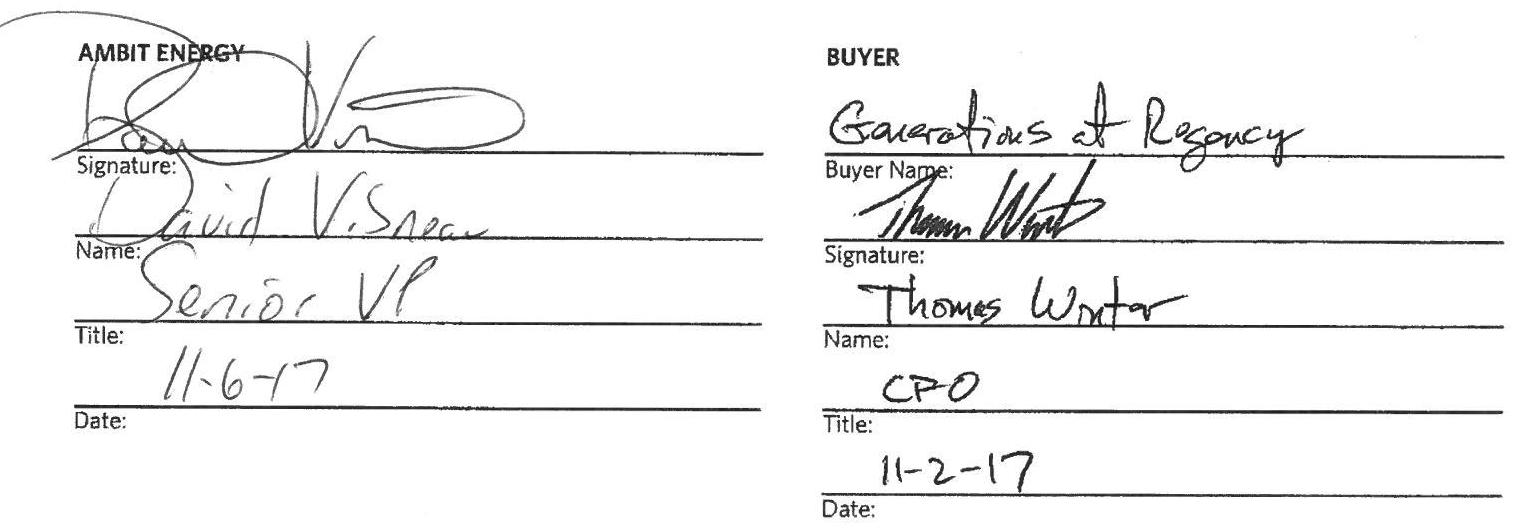 AMBIT ENERGY
Signature:
David
Name:
Senior VP
Title:
11-6-17
Date:
BUYER
Generations at Regency
Buyer Name:
Thomas
Signature:
Thomas Winter
Name:
Title:
11-2-17
Date: